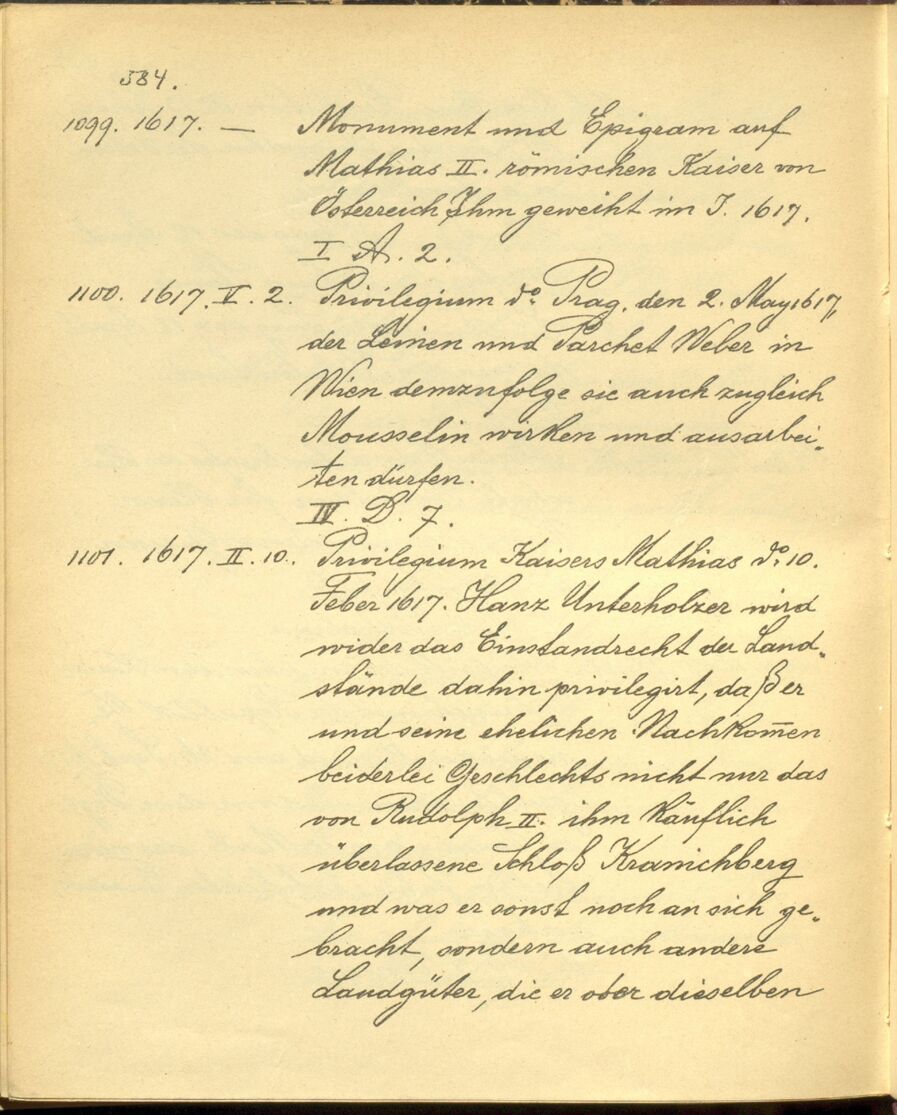 584.
1099. 1617. — Monument und Epigram auf
Mathias II. römischen Kaiser von
Österreich Ihm geweiht im J. 1617.
I A. 2.
1100. 1617. V. 2. Privilegium do. Prag, den 2. May 1617,
der Leinen und Parchet Weber in
Wien demzufolge sie auch zugleich
Mousselin wirken und ausarbei-
ten dürfen.
IV. D. 7.
1101. 1617. II. 10. Privilegium Kaisers Mathias do. 10.
Feber 1617. Hanz Unterholzer wird
wider das Einstandrecht der Land-
stände dahin privilegirt, daß er
und seine ehelichen Nachkom̅en
beiderlei Geschlechts nicht nur das
von Rudolph II. ihm käuflich
überlassene Schloß Kranichberg
und was er sonst noch an sich ge-
bracht, sondern auch andere
Landgüter, die er oder dieselben